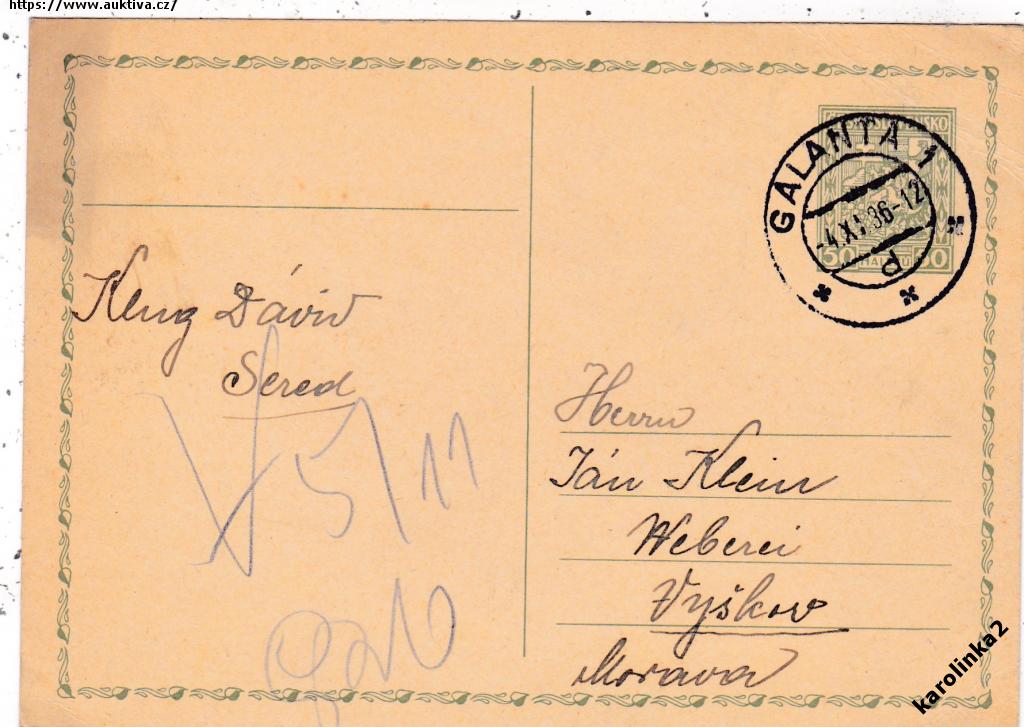 https://www.auktiva.cz/
GALANTA 1
-4.XI.36-12
P
50 50
Dávid
Sered
V 5/11
Herrn
Ján Klein
Weberei
Vyškov
Morava
karolinka2